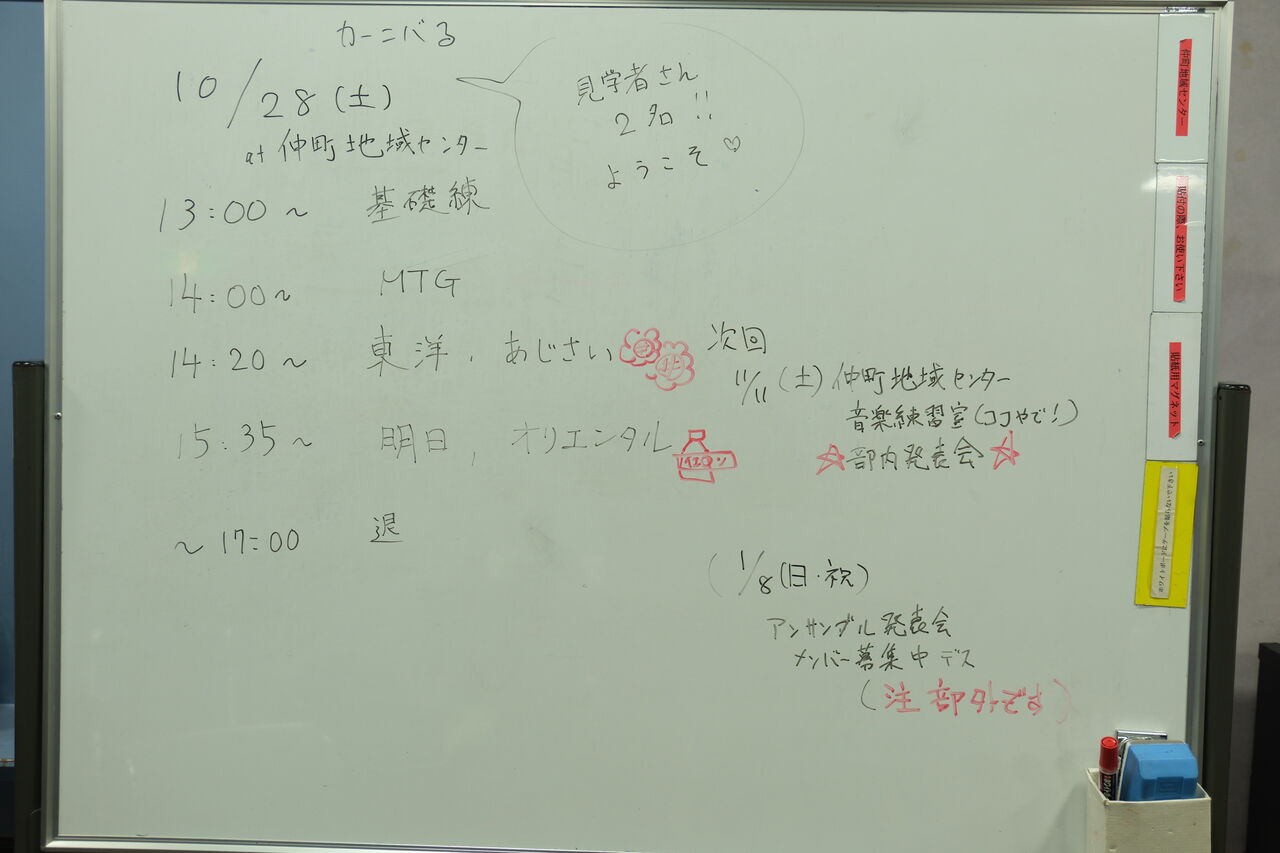 カーニバる
10/28(土)
at 仲町地域センター
見学者さん
2名!!
ようこそ♡
13:00〜 基礎練
14:00〜 MTG
14:20〜 東洋, あじさい
15:35〜 明日, オリエンタル
〜17:00 退
次回
11/11(土) 仲町地域センター
音楽練習室(ココやで!)
☆部内発表会☆
(1/8(日・祝)
アンサンブル発表会
メンバー募集中デス
(注 部外です)
仲町地域センター
貼付の際、お使い下さい
貼紙用マグネット